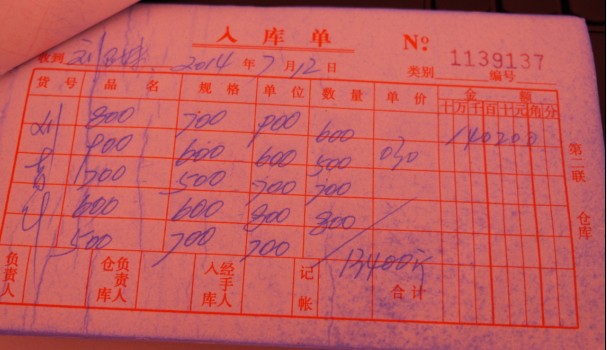 入库单 №
1139137
收到 2014年7月12日 类别 编号
货号 品名 规格 单位 数量 单价 金额
十万千百十元角分
800 700 900 600 140200
900 600 600 500
700 500 700 700
600 600 800 800
500 700 700 13400元
第二联 仓库
负责人 仓库负责人 入库经手人 记帐 合计